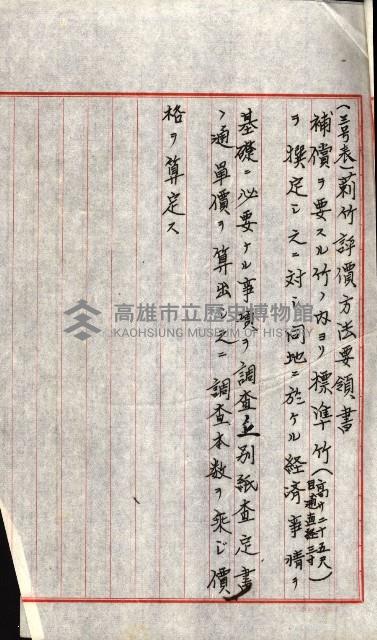 (三号表莿竹評價方法要領書
補償ヲ要スル竹ノ内ヨリ標準竹(高サ二十五尺 目通直経三寸)
ヲ撰定シ之ニ対シ同地ニ於ケル経済事情ヲ
基礎ニ必要ナル事項ヲ調査並別紙査定書
ノ通單價ヲ算出之ニ調査本数ヲ乘ジ價
格ヲ算定ス
高雄市立歷史博物館
KAOHSIUNG MUSEUM OF HISTORY